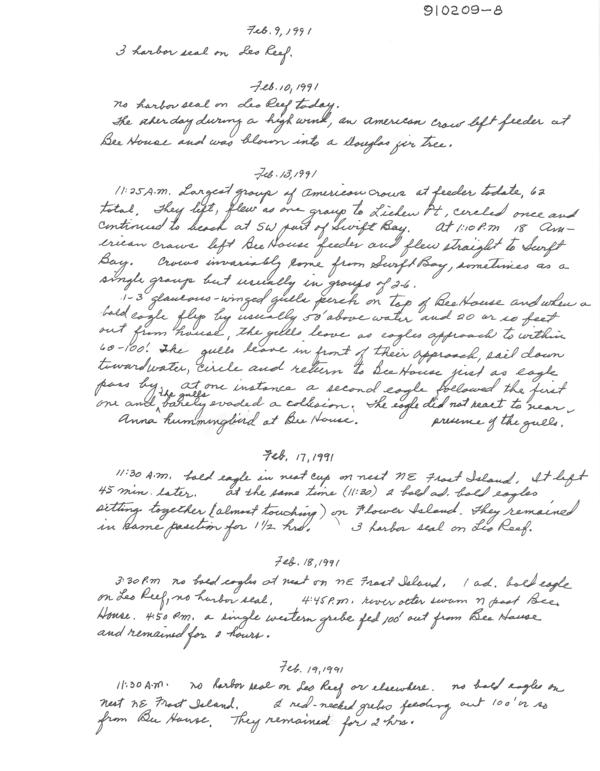 910209-8
Feb. 9, 1991
3 harbor seal on Leo Reef.
Feb. 10, 1991
no harbor seal on Leo Reef today.
The other day during a high wind, an american crow left feeder at
Bee House and was blown into a Douglas fir tree.
Feb. 13, 1991
11:25 A.M. Largest group of american crows at feeder to date, 62
total. They left, flew as one group to Lichen Pt, circled once and
continued to beach at SW part of Swift Bay. At 1:10 P.M 18 Am-
erican crows left Bee House feeder and flew straight to Swift
Bay. Crows invariably come from Swift Bay, sometimes as a
single group but usually in groups of 2-6.
1-3 glaucous-winged gulls perch on top of Bee House and when a
bald eagle flys by usually 50' above water and 20 or so feet
out from house, the gulls leave as eagles approach to within
60-100'. The gulls leave in front of their approach, sail down
toward water, circle and return to Bee House just as eagle
pass by. at one instance a second eagle followed the first
one and the gulls barely evaded a collision. The eagle did not react to near
Anna hummingbird at Bee House. presence of the gulls.
Feb. 17, 1991
11:30 A.M. bald eagle in nest cup on nest NE Frost Island. It left
45 min. later. at the same time (11:30) 2 bald ad. bald eagles
sitting together (almost touching) on Flower Island. They remained
in same position for 1 1/2 hrs. 3 harbor seal on Leo Reef.
Feb. 18, 1991
3:30 P.M no bald eagles at nest on NE Frost Island. 1 ad. bald eagle
on Leo Reef, no harbor seal. 4:45 P.M. river otter swam N past Bee
House. 4:50 P.M. a single western grebe fed 100' out from Bee House
and remained for 2 hours.
Feb. 19, 1991
11:30 A.M. no harbor seal on Leo Reef or elsewhere. no bald eagles on
nest NE Frost Island. 2 red-necked grebes feeding out 100' or so
from Bee House. They remained for 2 hrs.